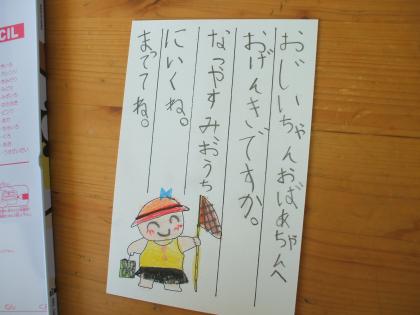 おじいちゃんおばあちゃんへ
おげんきですか。
なつやすみおうち
にいくね。
まっててね。
CIL